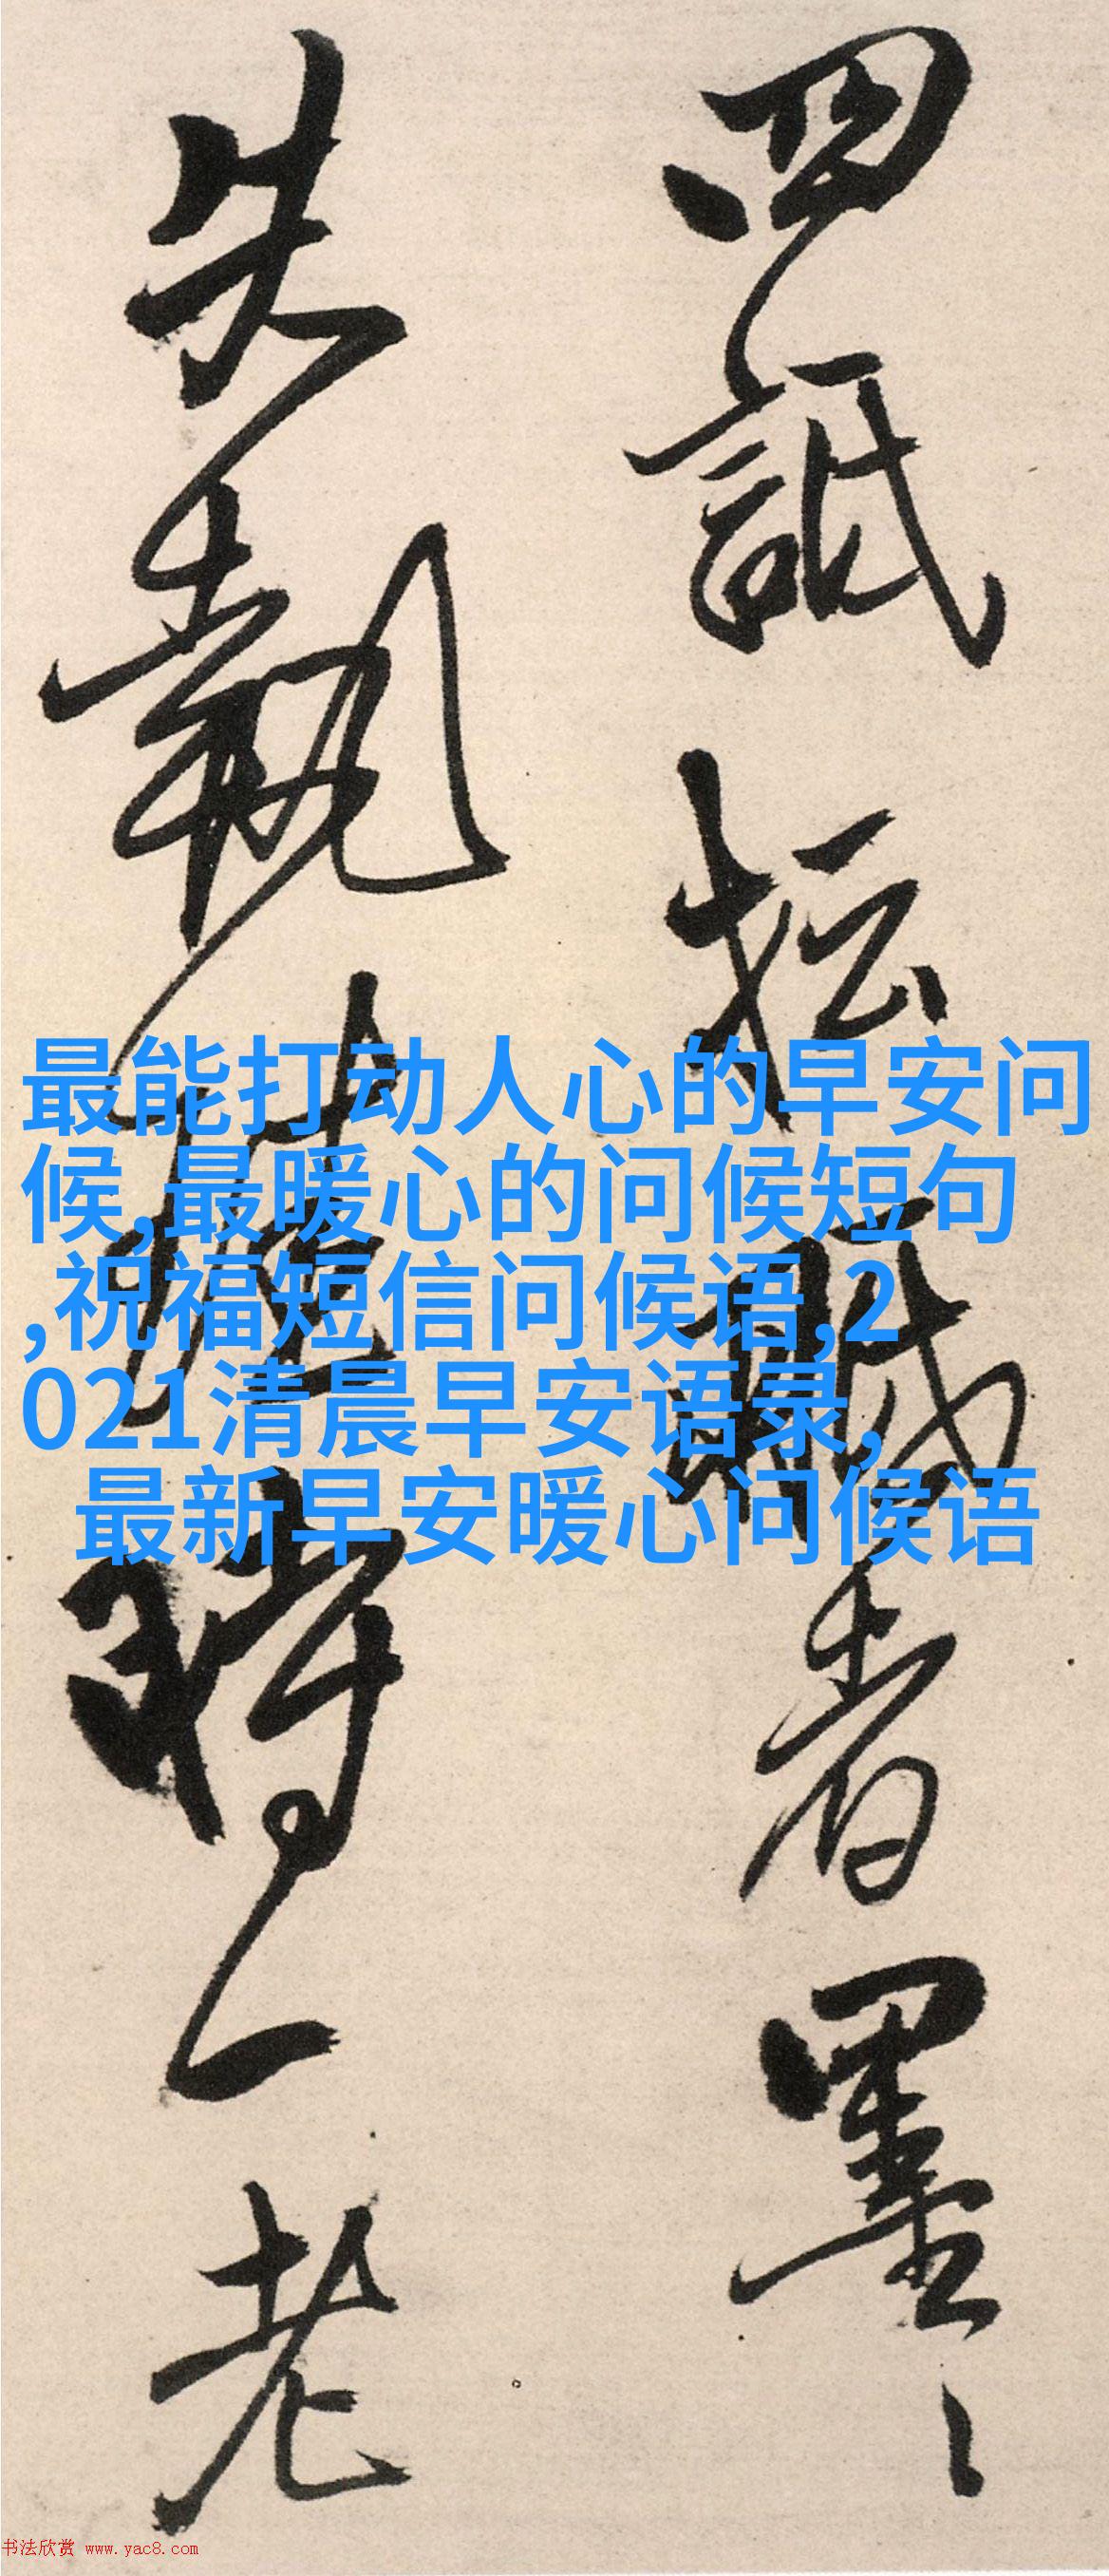 四詆短
者墨
失執
時一老
最能打动人心的早安问
候,最暖心的问候短句
,祝福短信问候语,2
021清晨早安语录,
最新早安暖心问候语
书法欣赏 www.yac8.com